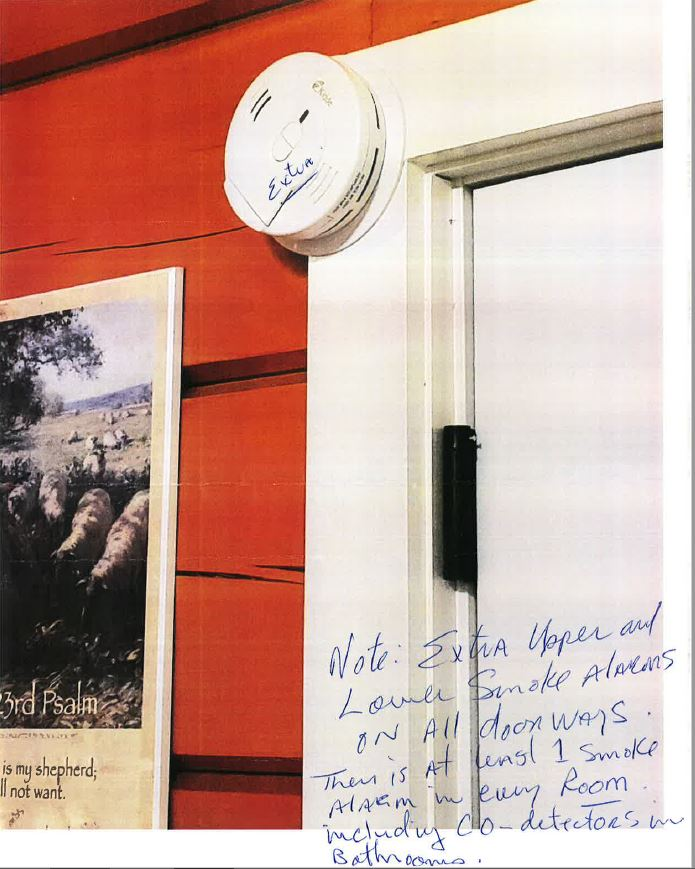 Kidde
Extra
23rd Psalm
is my shepherd;
ll not want.
Note: Extra Upper and
Lower Smoke Alarms
ON All doorways.
Ther is at least 1 Smoke
Alarm in every Room.
including CO-detectors in
Bathrooms.